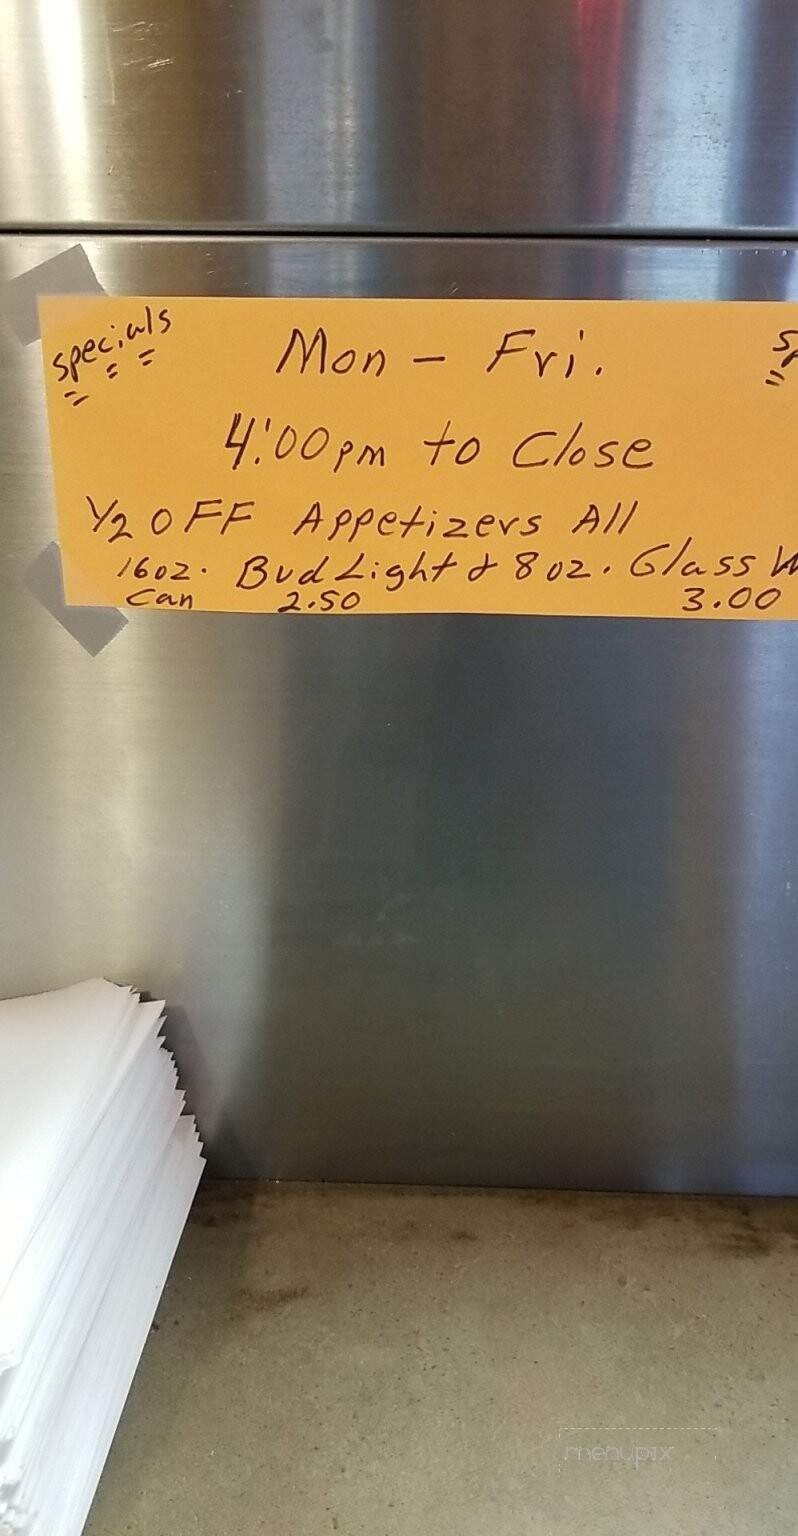 specials
Mon - Fri.
4:00pm to Close
1/2 OFF Appetizers All
16oz. Bud Light & 8oz. Glass
Can 2.50 3.00
menupix